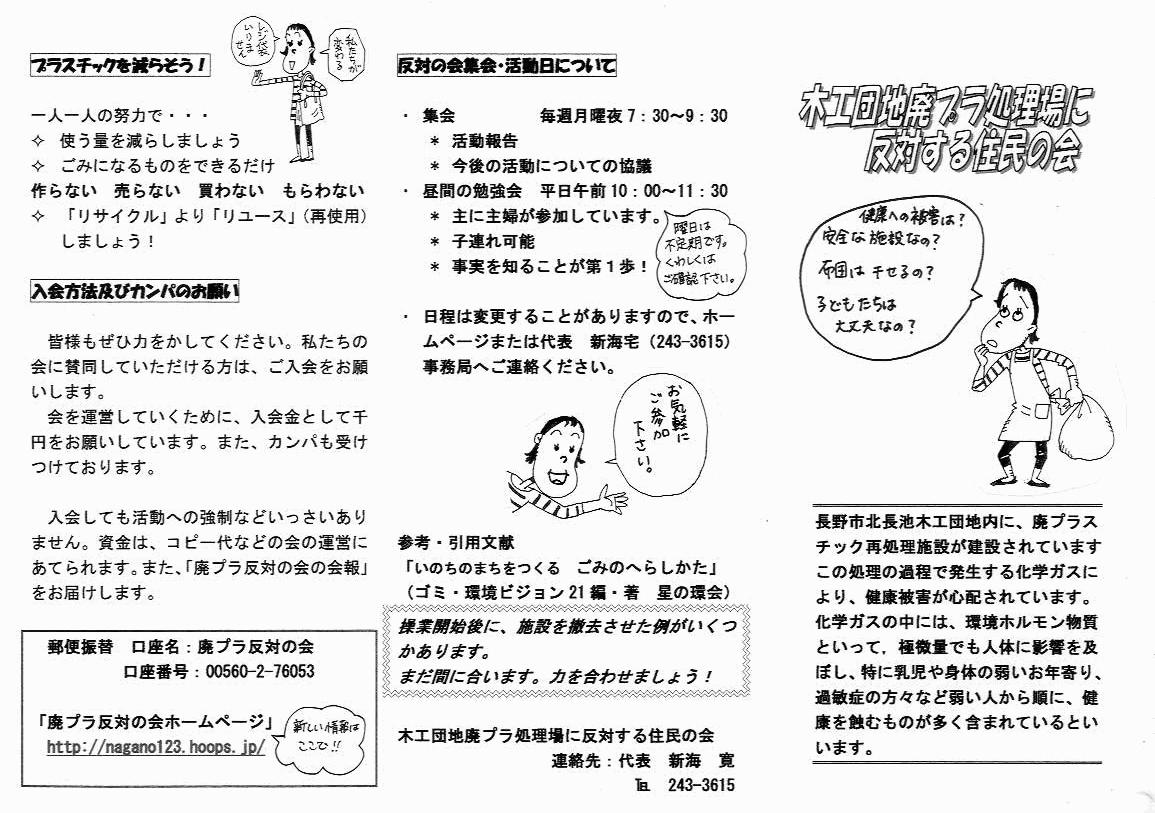 プラスチックを減らそう！
レジ袋、
いりま
せん
私たちが
変わる
一人一人の努力で・・・
✧ 使う量を減らしましょう
✧ ごみになるものをできるだけ
作らない 売らない 買わない もらわない
✧ 「リサイクル」より「リユース」（再使用）
しましょう！
入会方法及びカンパのお願い
皆様もぜひ力をかしてください。私たちの
会に賛同していただける方は、ご入会をお願
いします。
会を運営していくために、入会金として千
円をお願いしています。また、カンパも受け
つけております。
入会しても活動への強制などいっさいあり
ません。資金は、コピー代などの会の運営に
あてられます。また、「廃プラ反対の会の会報」
をお届けします。
郵便振替 口座名：廃プラ反対の会
口座番号：00560-2-76053
「廃プラ反対の会ホームページ」
http://nagano123.hoops.jp/
新しい情報は
ここで!!
反対の会集会・活動日について
・ 集会 毎週月曜夜7：30～9：30
＊ 活動報告
＊ 今後の活動についての協議
・ 昼間の勉強会 平日午前10：00～11：30
＊ 主に主婦が参加しています。
＊ 子連れ可能
＊ 事実を知ることが第1歩！
曜日は
不定期です。
くわしくは
ご確認下さい。
・ 日程は変更することがありますので、ホー
ムページまたは代表 新海宅（243-3615）
事務局へご連絡ください。
お気軽に
ご参加
下さい。
参考・引用文献
「いのちのまちをつくる ごみのへらしかた」
（ゴミ・環境ビジョン21編・著 星の環会）
操業開始後に、施設を撤去させた例がいくつ
かあります。
まだ間に合います。力を合わせましょう！
木工団地廃プラ処理場に反対する住民の会
連絡先：代表 新海 寛
℡ 243-3615
木工団地廃プラ処理場に
反対する住民の会
健康への被害は?
安全な施設なの?
布団は干せるの?
子どもたちは
大丈夫なの?
長野市北長池木工団地内に、廃プラス
チック再処理施設が建設されています
この処理の過程で発生する化学ガスに
より、健康被害が心配されています。
化学ガスの中には、環境ホルモン物質
といって，極微量でも人体に影響を及
ぼし、特に乳児や身体の弱いお年寄り、
過敏症の方々など弱い人から順に、健
康を蝕むものが多く含まれているとい
います。